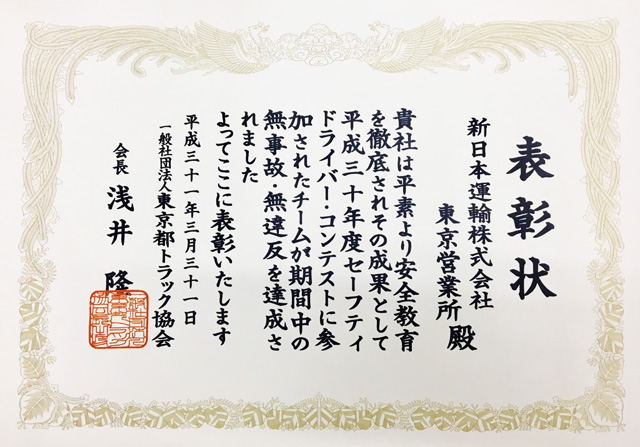 表彰状
新日本運輸株式会社
東京営業所 殿
貴社は平素より安全教育
を徹底されその成果として
平成三十年度セーフティ
ドライバー・コンテストに参
加されたチームが期間中の
無事故・無違反を達成さ
れました
よってここに表彰いたします
平成三十一年三月三十一日
一般社団法人東京都トラック協会
会長 浅井 隆